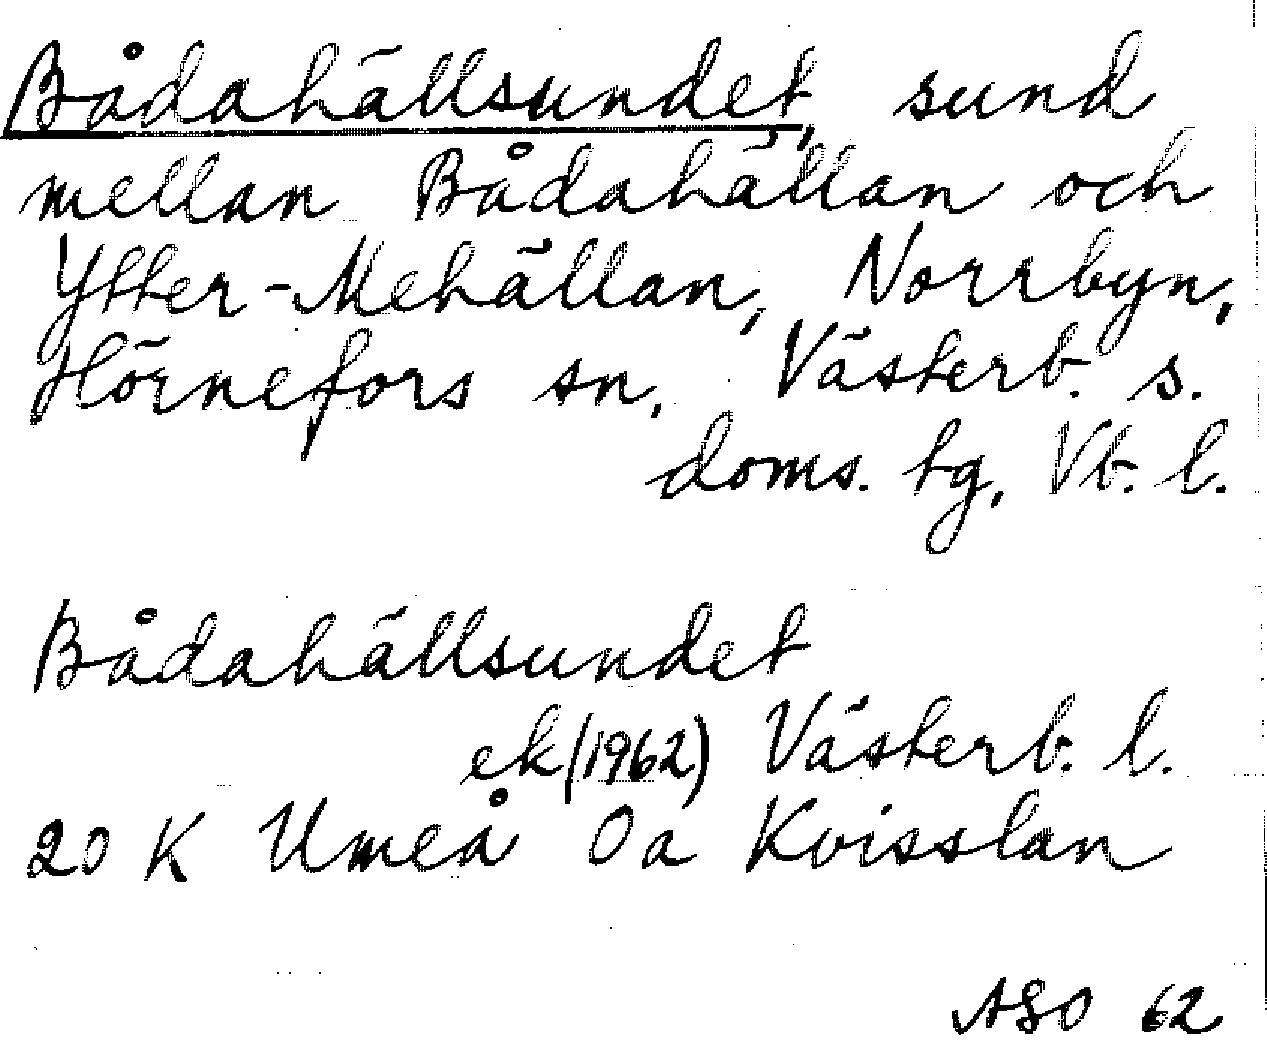 Bådahällsundet, sund
mellan Bådahällan och
Ytter-Mehällan, Norrbyn,
Hörnefors sn, Västerb. s.
doms. tg, Vb. l.
Bådahällsundet
ek (1962) Västerb. l.
20 K Umeå 0a Kvisslan
ASO 62